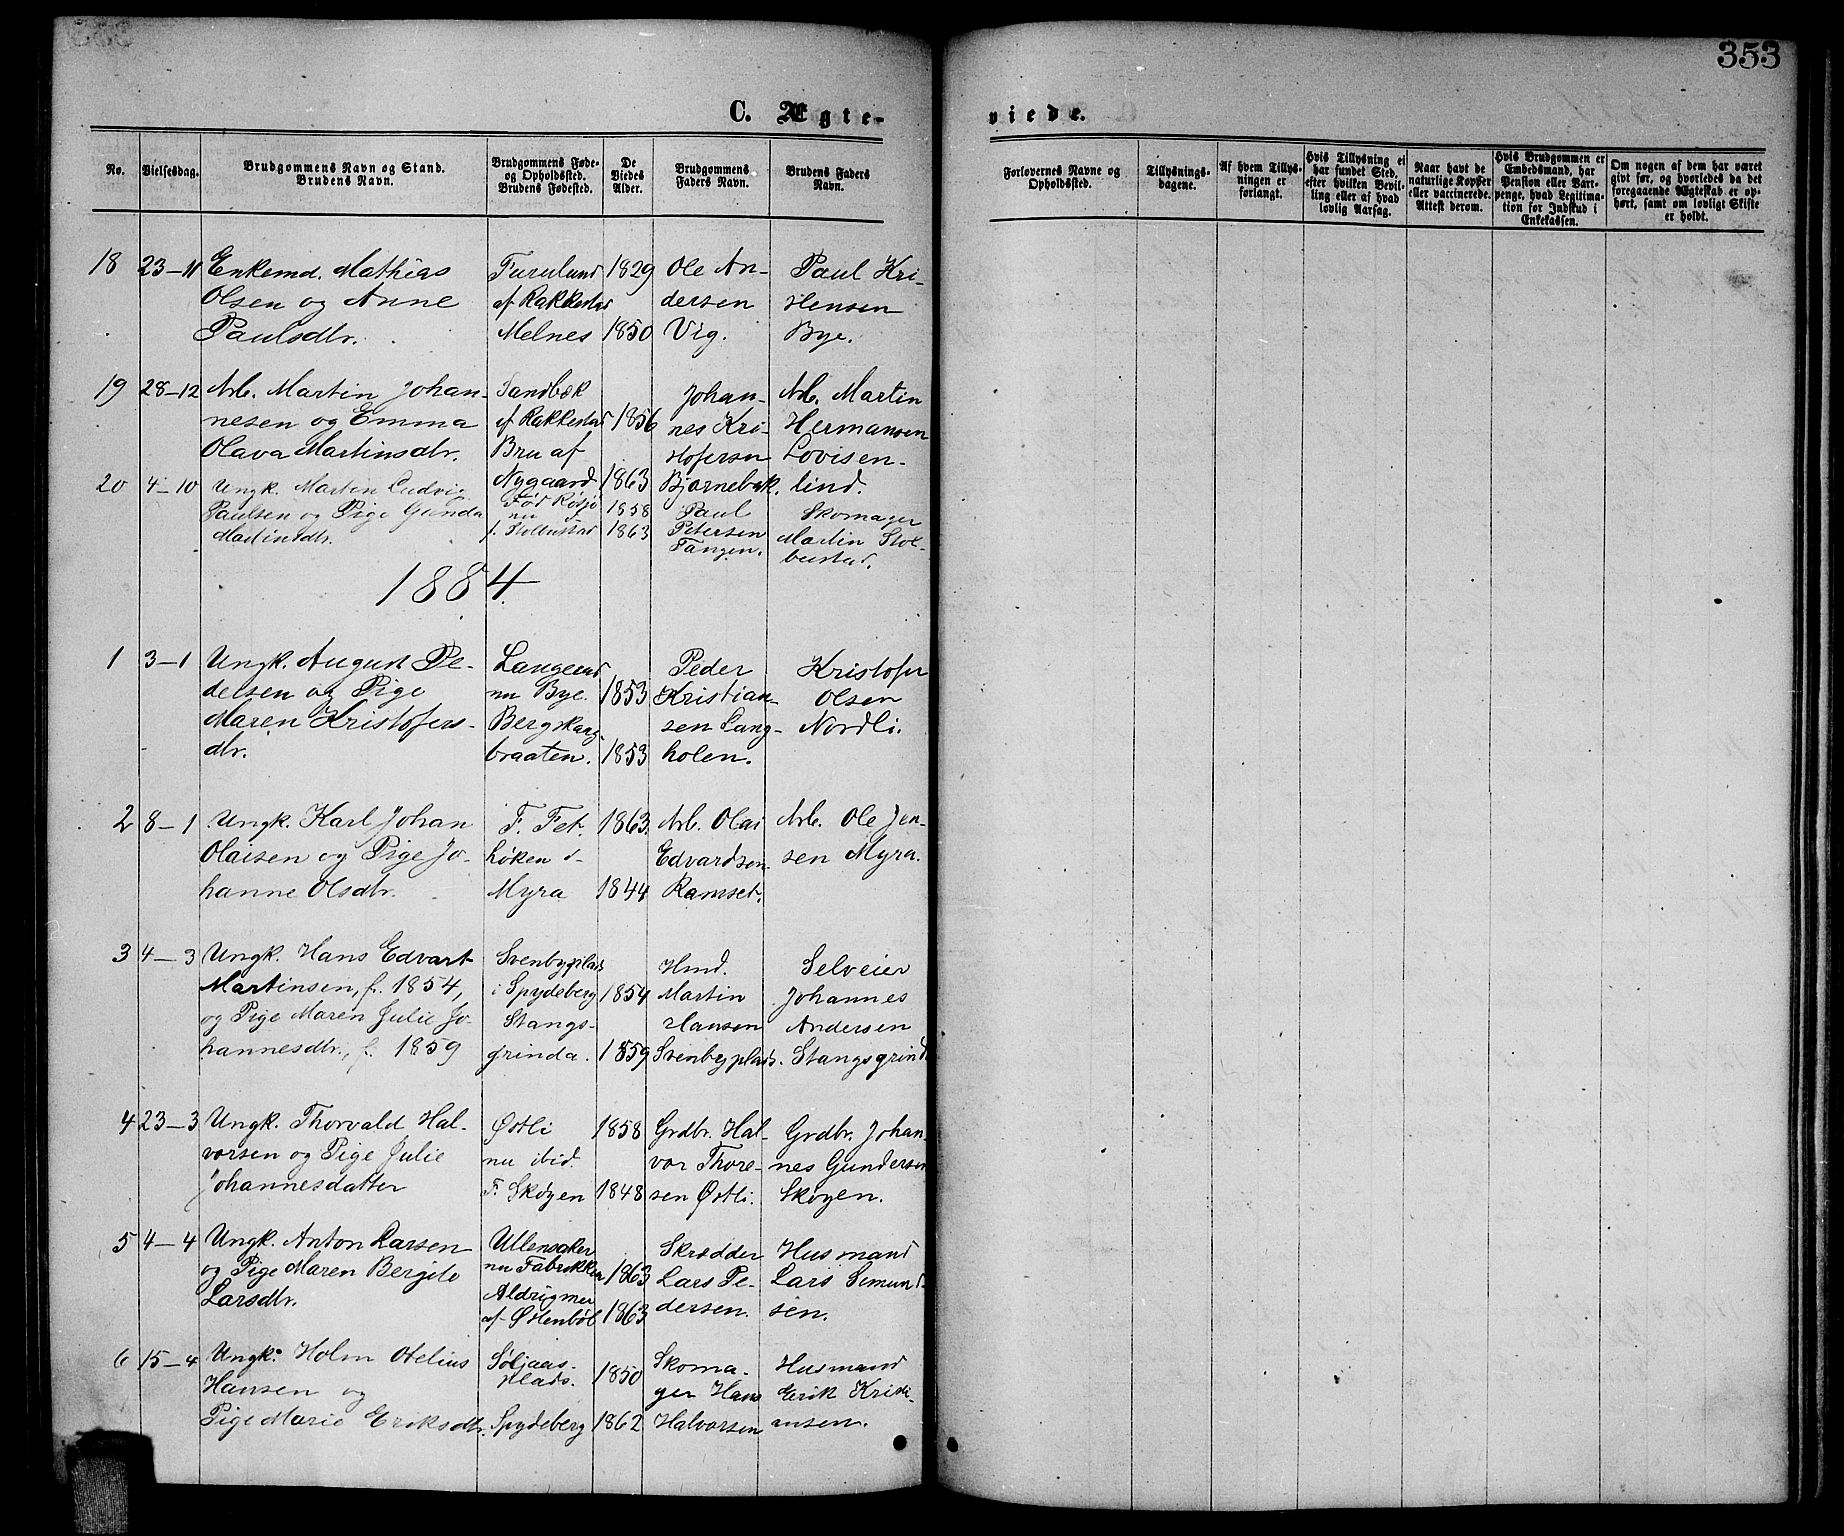 353
C. Ægte-
viede.
No.
Vielsesdag.
Brudgommens Navn og Stand.
Brudens Navn.
Brudgommens Føde-
og Opholdssted.
Brudens Fødested.
De
Viedes
Alder.
Brudgommens
Faders Navn.
Brudens Faders
Navn.
Forlovernes Navne og
Opholdssted.
Tillysnings-
dagene.
Af hvem Tillys-
ningen er
forlangt.
Hvis Tillysning ei
har fundet Sted,
efter hvilken Bevil-
ling eller af hvad
lovlig Aarsag.
Naar havt de
naturlige Kopper
eller vaccinerede.
Attest derom.
Hvis Brudgommen er
Embedsmand, har
Pension eller Vart-
penge, hvad Legitima-
tion for Indskud i
Enkekassen.
Om nogen af dem har været
gift før, og hvorledes da det
foregaaende Ægteskab er op-
hørt, samt om lovligt Skifte
er holdt.
18 23-11
Enkemd. Mathias
Olsen og Anne
Paulsdtr.
Furulund
af Rakkestad
Melnes
1829
1850
Ole An-
dersen
Vig.
Paul Kri-
stensen
Bye.
19 28-12
Arb. Martin Johan-
nesen og Emma
Olava Martinsdtr.
Sandbæk
af Rakkestad
Bru af
Nygaard
1856
1863
Johan-
nes Kri-
stofersen
Bjørnebæk.
Arb. Martin
Hermansen
Lovisen-
lind.
20 4-10
Ungk. Martin Ludvig
Paulsen og Pige Gunda
Martinsdtr.
Fød Røsjø
nu
f. Stolbustad
1858
1863
Paul
Petersen
Tangen.
Skomager
Martin Stol-
bustad.
1884
1 3-1
Ungk. August Pe-
dersen og Pige
Maren Kristofers-
dtr.
nu Bye.
Bergskaug-
braaten.
1853
1853
Peder
Kristian-
sen Lang-
holen.
Kristofer
Olsen
Nordli.
2 8-1
Ungk. Karl Johan
Olaisen og Pige Jo-
hanne Olsdtr.
F. Fet.
Myra
1863.
1844
Arb. Olai
Edvardsen
Ramset.
Arb. Ole Jen-
sen Myra.
3 4-3
Ungk. Hans Edvart
Martinsen, f. 1854,
og Pige Maren Julie Jo-
hannesdtr., f. 1859
Svenbyplads
i Spydeberg
Stangs-
grinda.
1854
1859
Hmd.
Martin
Hansen
Svenbyplads.
Selveier
Johannes
Andersen
Stangsgrind.
4 23-3
Ungk. Thorvald Hal-
vorsen og Pige Julie
Johannesdatter
Østli
nu ibid.
F. Skøyen
1858
1848
Grdbr. Hal-
vor Thore-
sen Østli.
Grdbr. Johan-
nes Gundersen
Skøyen.
5 4-4
Ungk. Anton Larsen
og Pige Maren Bergite
Larsdtr.
Ullensaker
nu Fabrikken
Aldrigmer
af Østenbøl
1863
1863
Skrædder
Lars Pe-
dersen.
Husmand
Lars Simund-
sen.
6 15-4
Ungk. Holm Otelius
Hansen og
Pige Marie Eriksdtr.
Søljaas-
plads.
Spydeberg
1850
1862
Skoma-
ger Hans
Halvorsen
Husmand
Erik Kristi-
ansen.